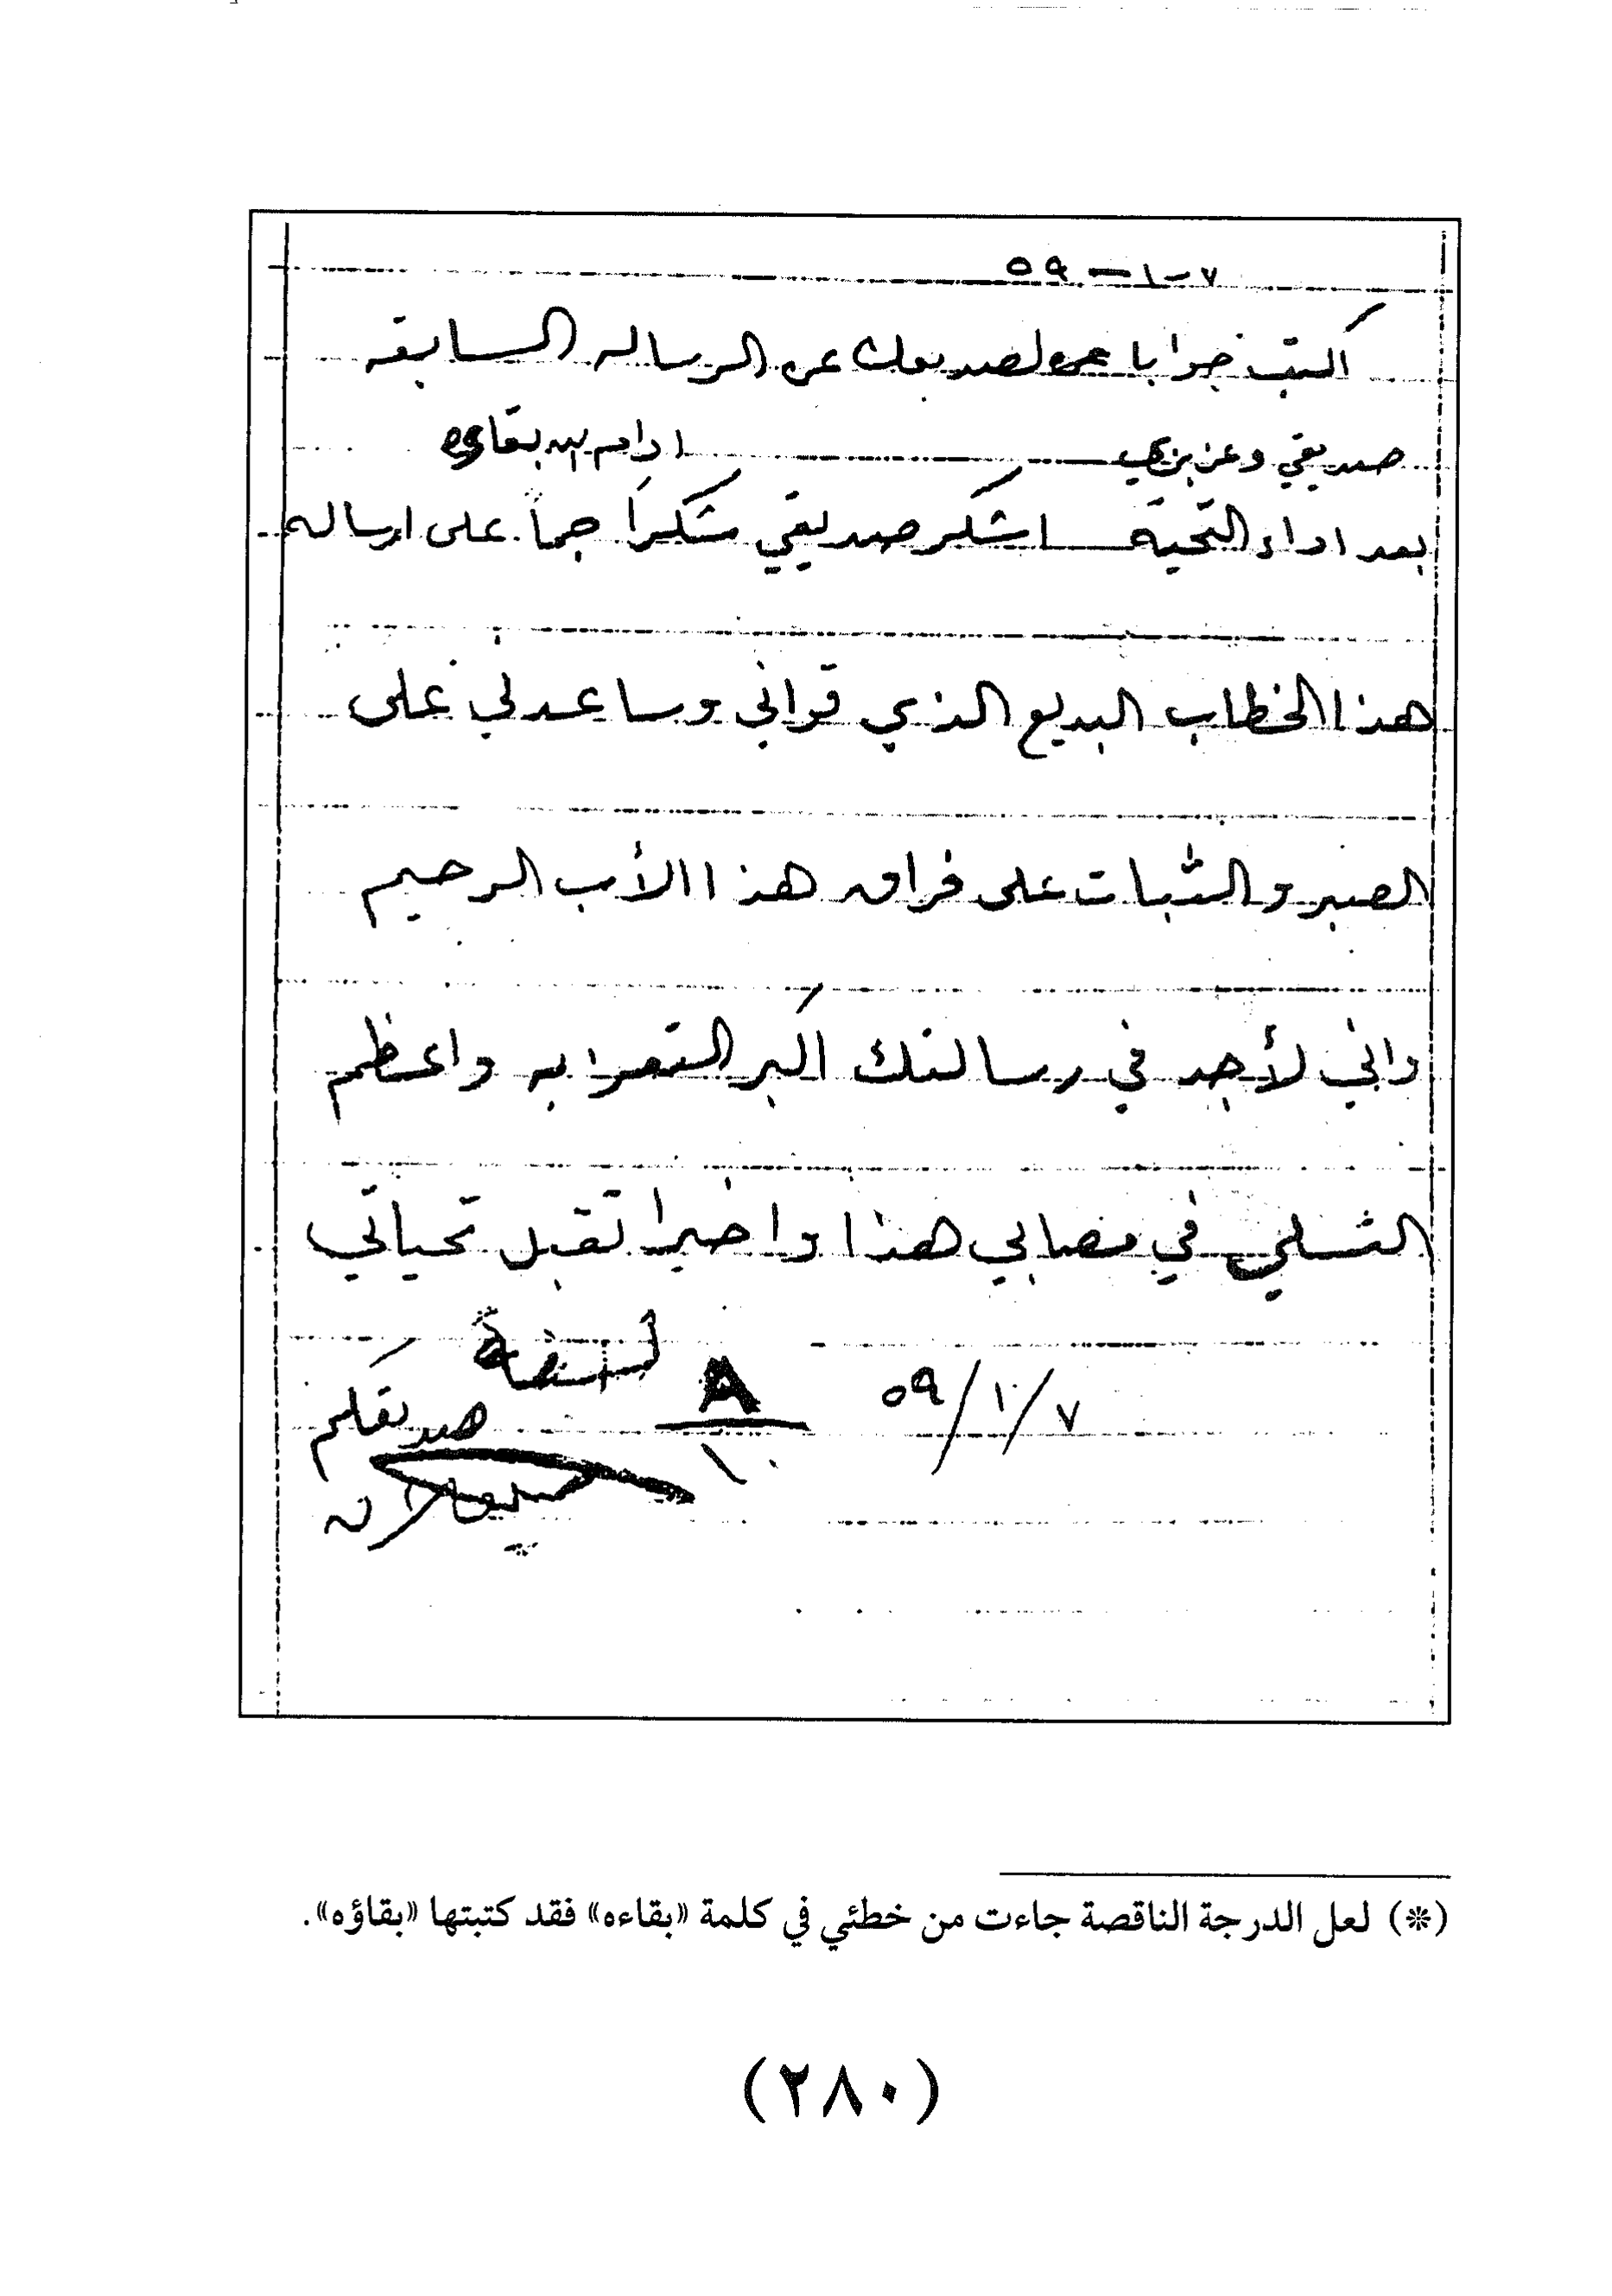 ٧-١-٥٩
اكتب جوابا لصديقك عن الرساله السابقه
صديقي وعزيزي ادام الله بقاؤه
بعد اداء التحية اشكر صديقي شكراً جماً على ارساله
هذا الخطاب البديع الذي قواني وساعدني على
الصبر والثبات على فراق هذا الأب الرحيم
واني لأجد في رسالتك اكبر التعزايه واعظم
التسلي في مصابي هذا واخيرا تقبل تحياتي
٥٩/١/٧ ٨/١٠
صديقكم
(*) لعل الدرجة الناقصة جاءت من خطئي في كلمة «بقاءه» فقد كتبتها «بقاؤه».
(٢٨٠)